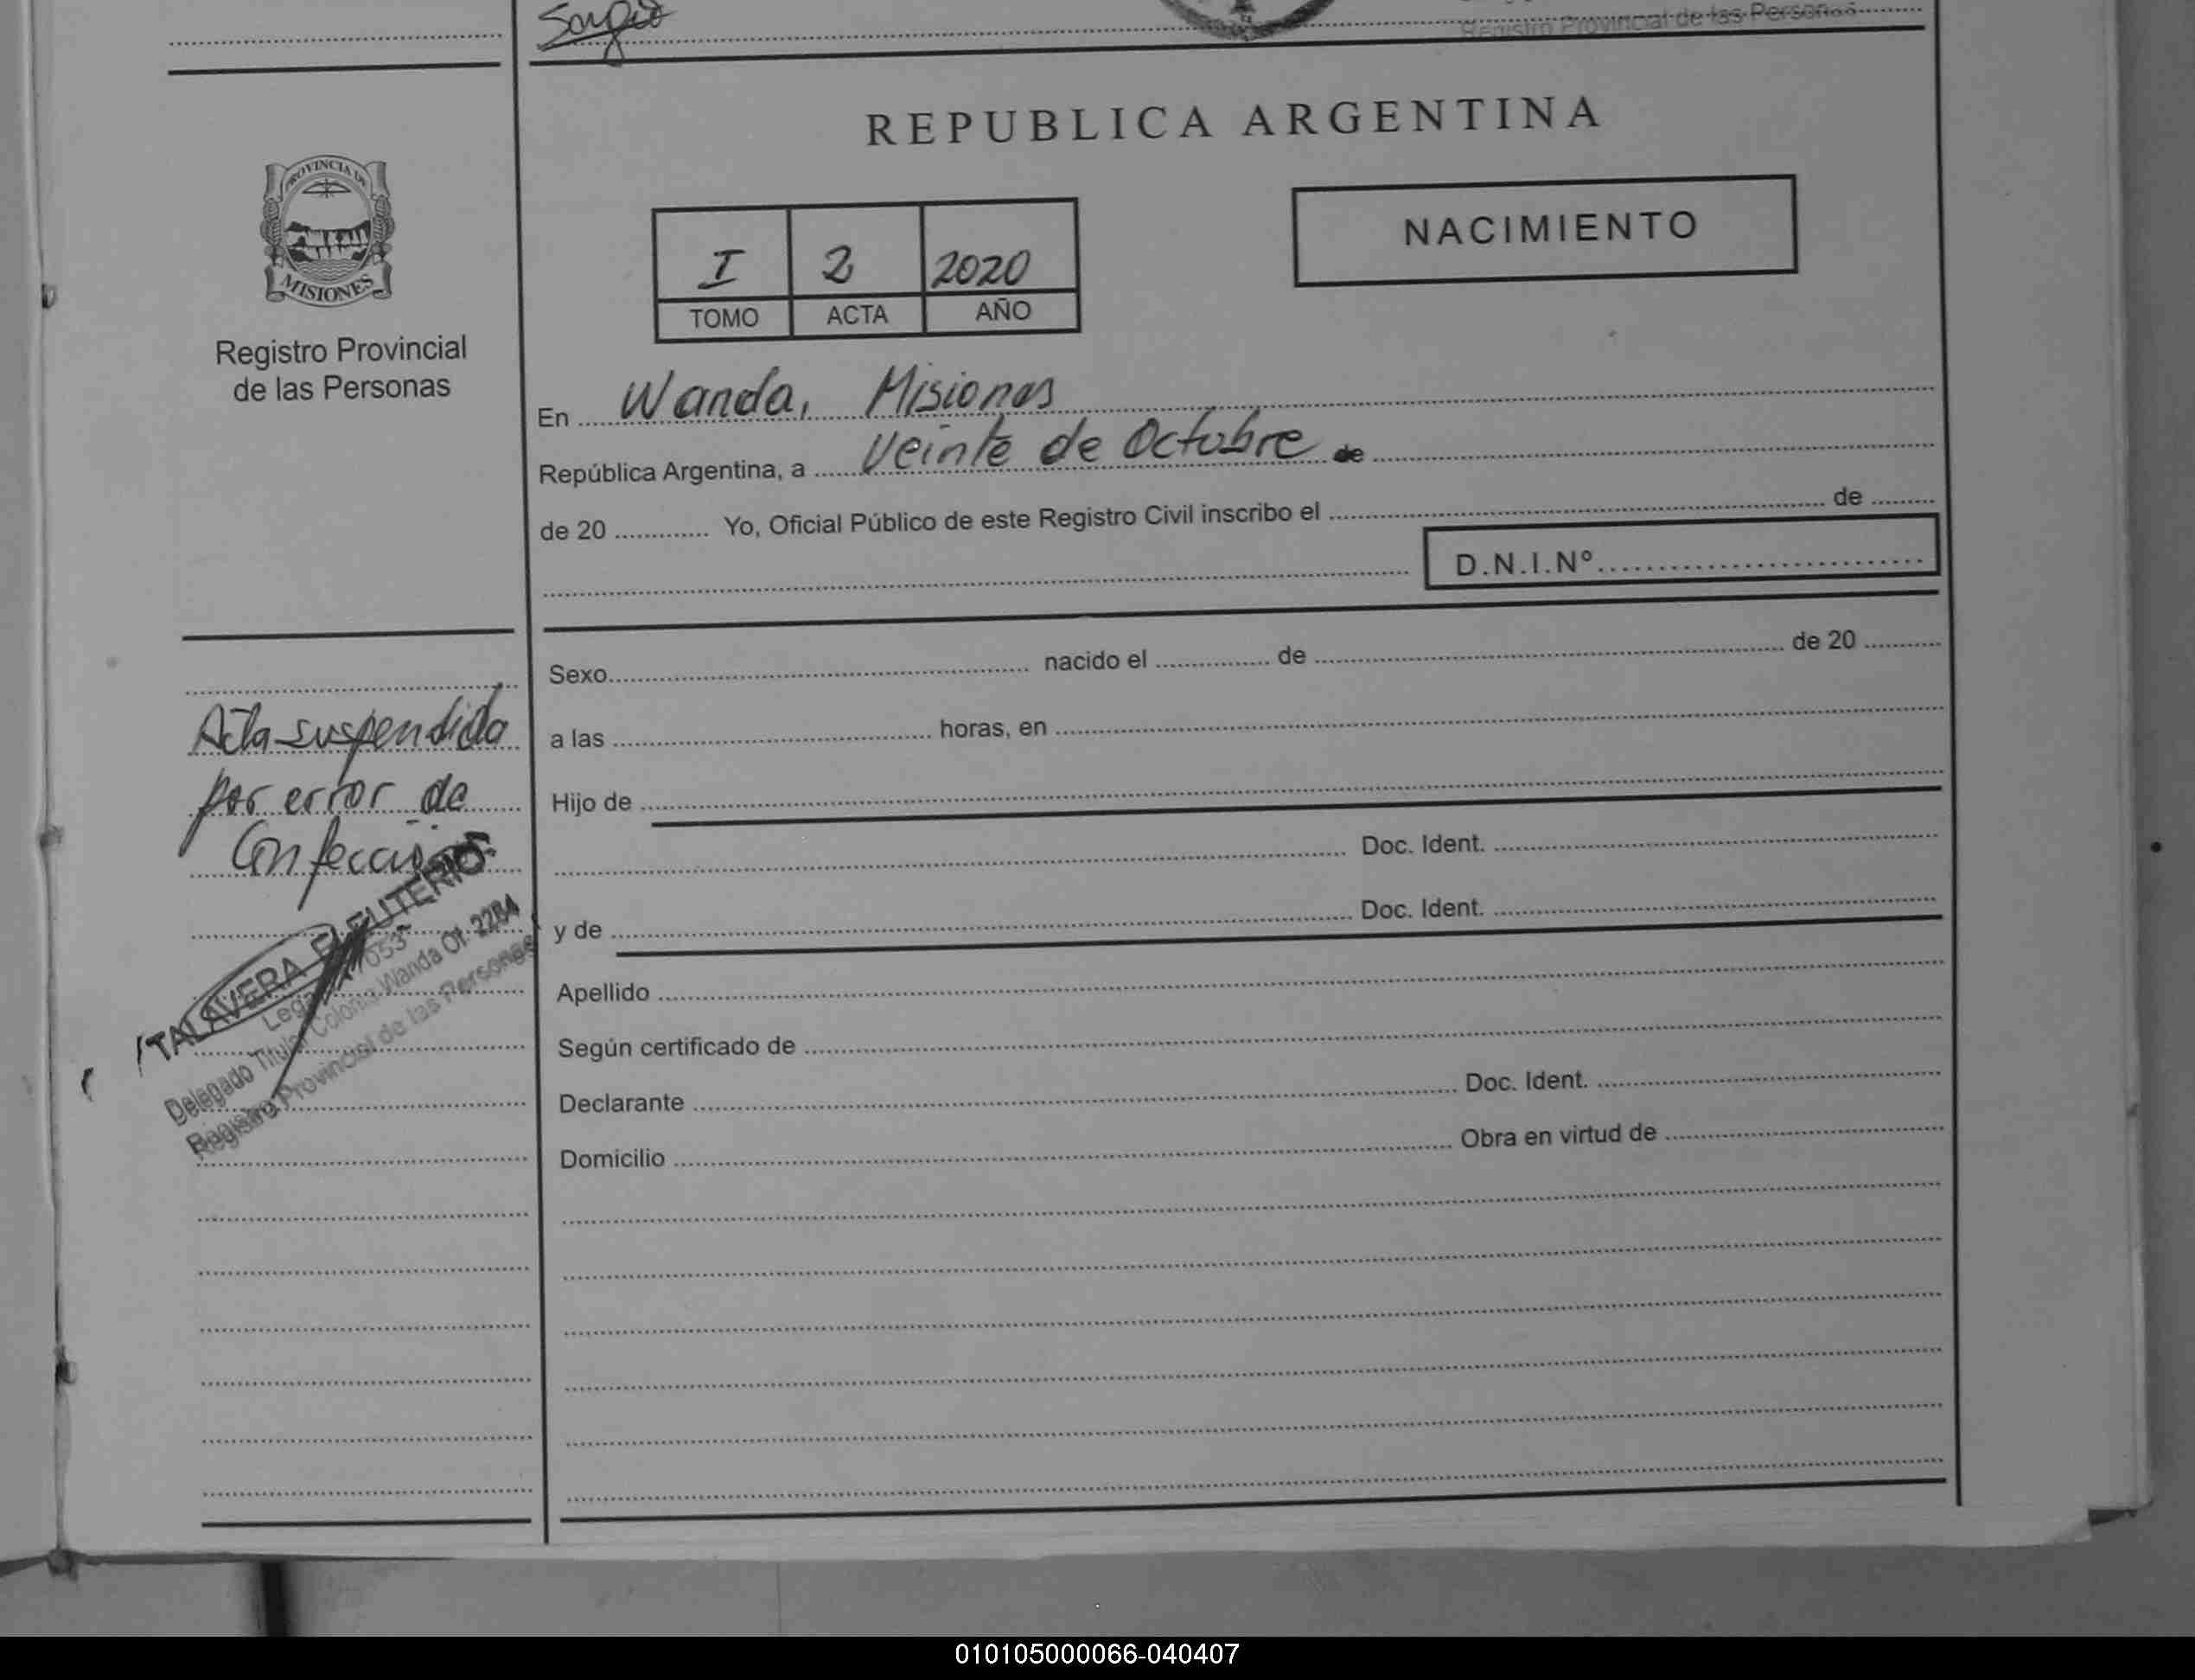 Sergio
Registro Provincial de las Personas
REPUBLICA ARGENTINA
PROVINCIA DE
MISIONES
Registro Provincial
de las Personas
I 2 2020
TOMO ACTA AÑO
NACIMIENTO
En Wanda, Misiones
República Argentina, a Veinte de Octubre de
de 20 Yo, Oficial Público de este Registro Civil inscribo el de
D.N.I.Nº
Sexo nacido el de de 20
a las horas, en
Hijo de
Doc. Ident.
y de Doc. Ident.
Apellido
Según certificado de
Declarante Doc. Ident.
Domicilio Obra en virtud de
Acta suspendida
por error de
Confección
TALAVERA ELEUTERIO
Delegado Titular Colonia Wanda Of. 2284
Registro Provincial de las Personas
010105000066-040407